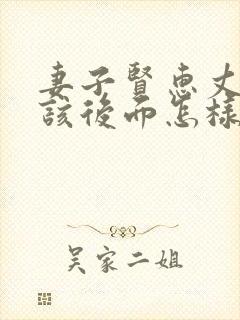 妻子賢惠丈
該後而怎樣
吴家二姐